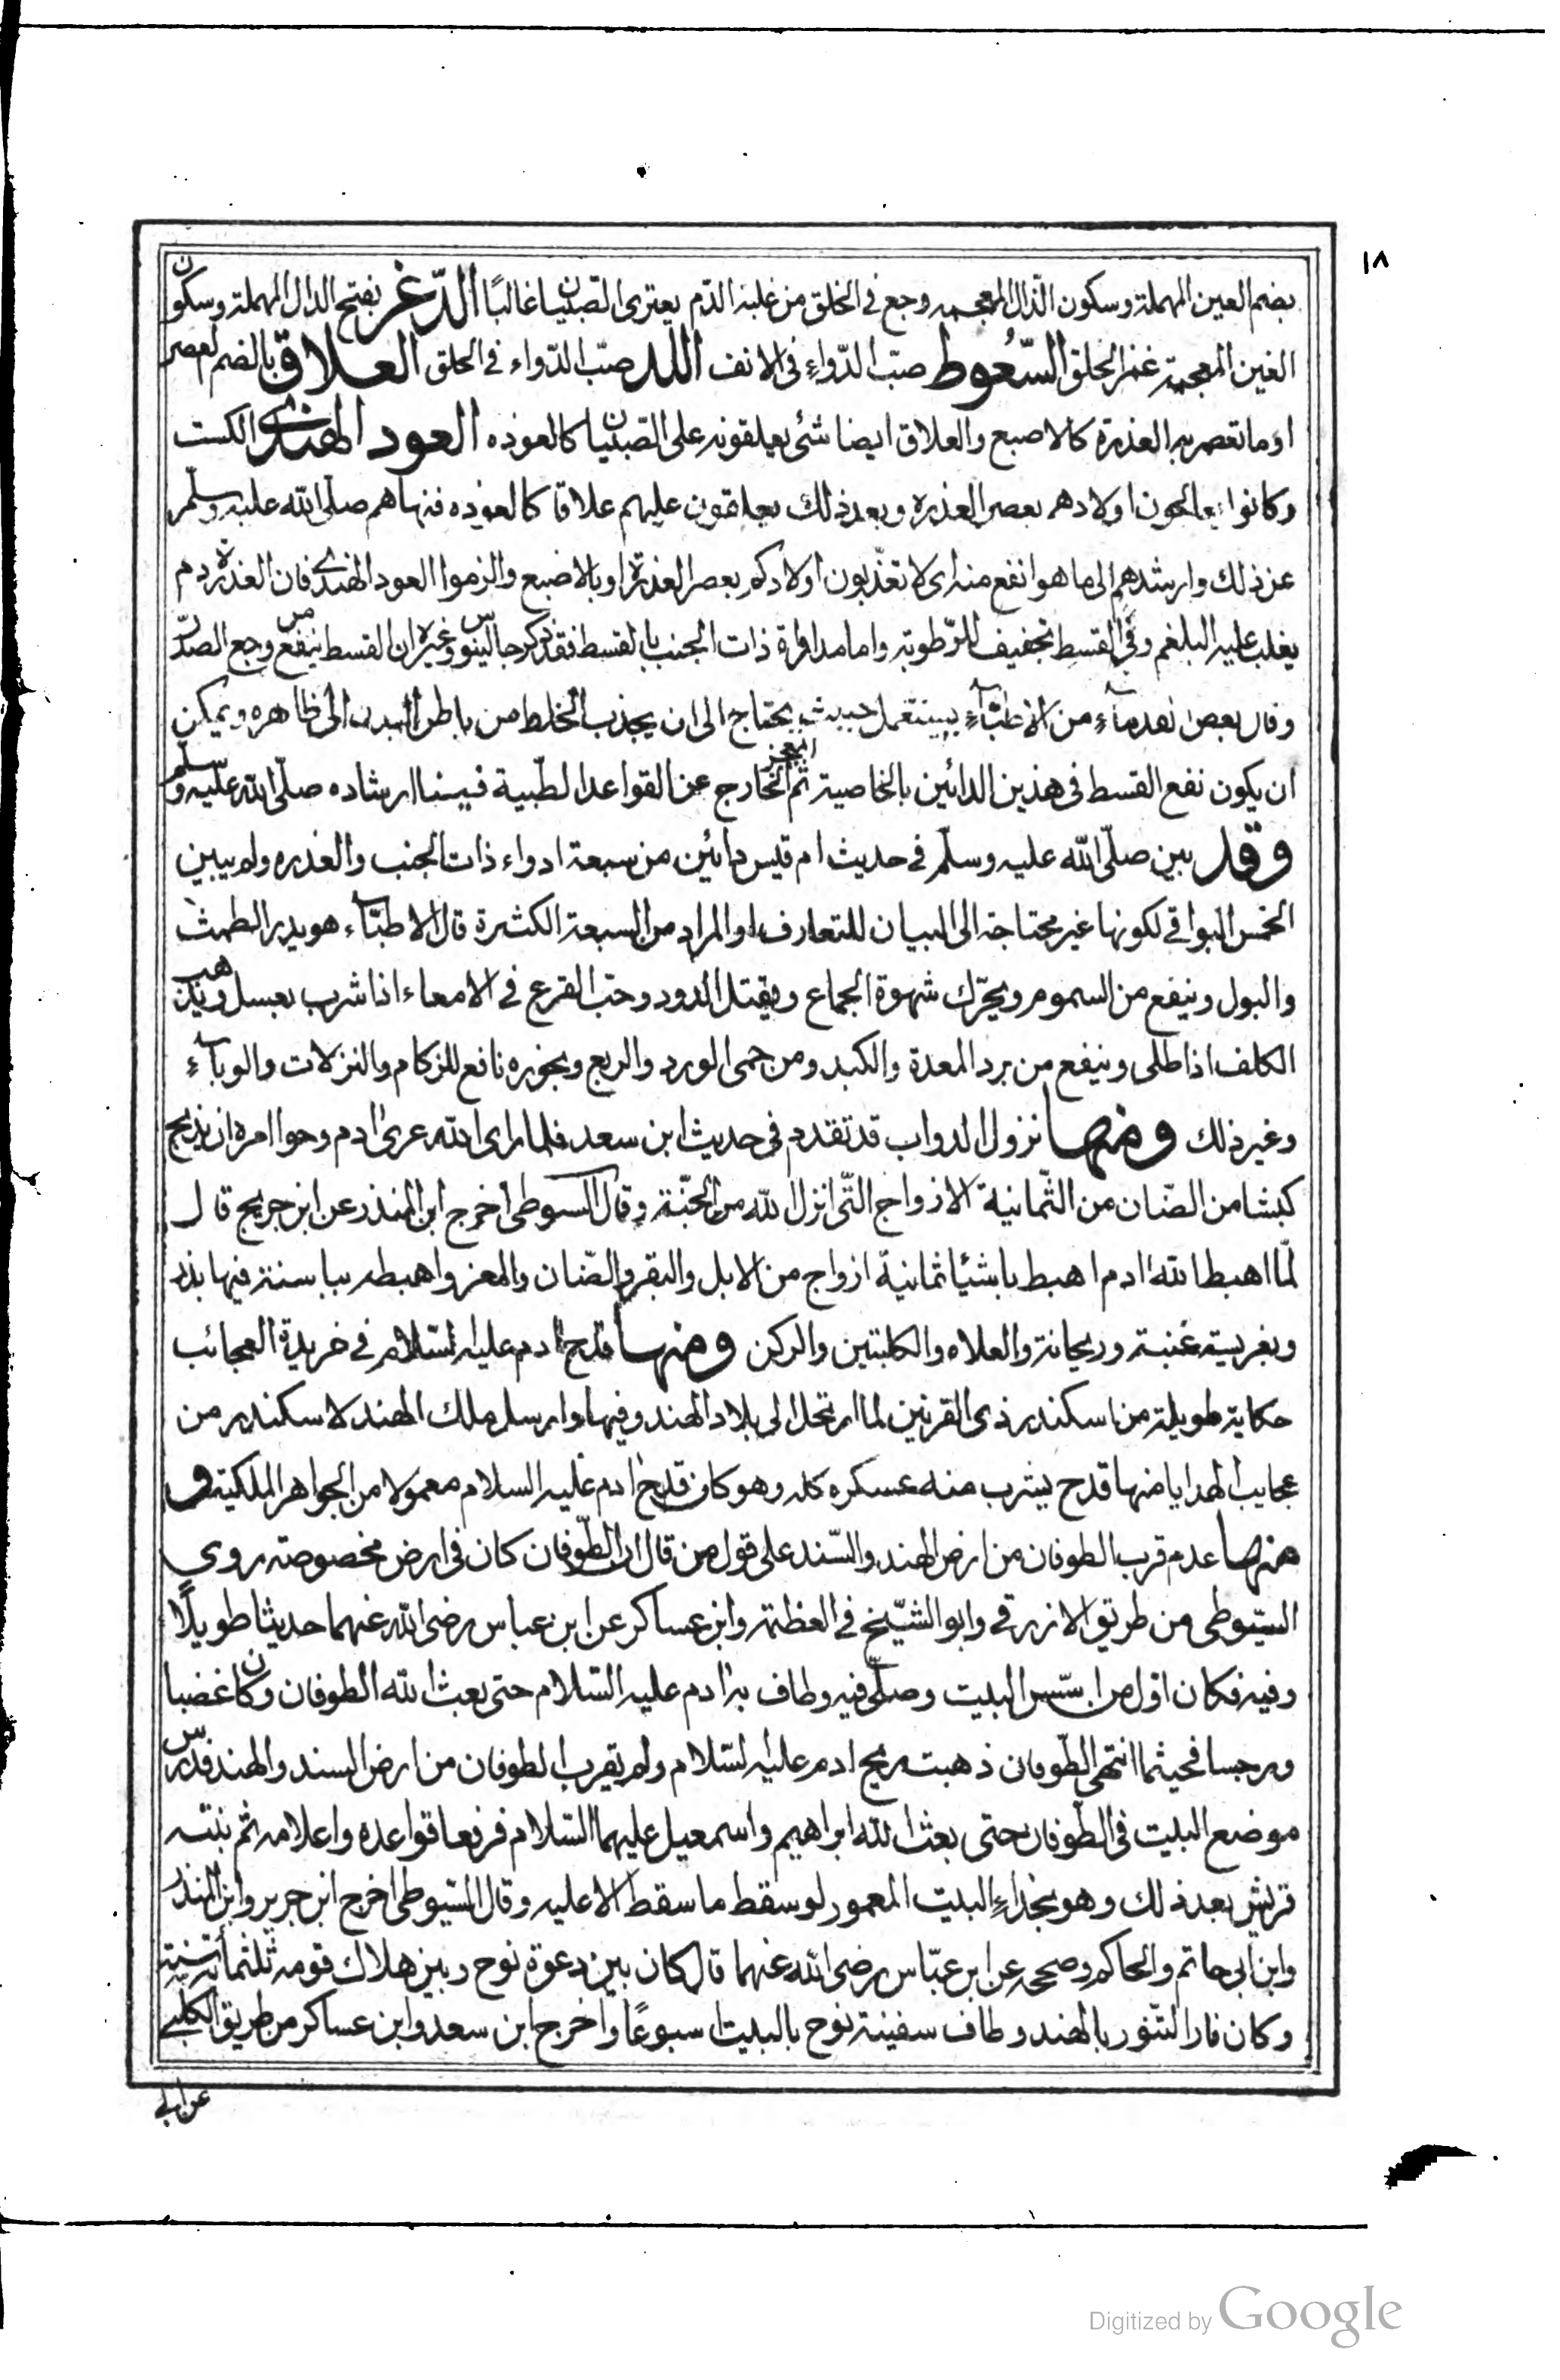 ١٨
بضم العين المهملة وسكون الذال المعجمه وجع فى الحلق من غلبة الدم يعترى الصبيان غالبًا الدّغر بفتح الدال المهملة وسكون
الغين المعجمة غمز الحلق السّعُوط صبّ الدّواءِ فى الانف اللد صبّ الدّواء فى الحلق العلاق بالضم لعصر
او ما تعصر به العذرة كالاصبع والعلاق ايضا شئ يعلقونه على الصّبيان كالعوذه العود الهندى الكست
وكانوا يعالجون اولادهم بعصر العذره وبعد ذلك يعلقون عليهم علاقا كالعوذه فنهاهم صلّى الله عليه وسلّم
عن ذلك وارشدهم الى ما هو انفع منه اى لا تعذّبون اولادكم بعصر العذرة او بالاصبع والزموا العود الهندى فان العذرة دم
يغلب عليه البلغم وفى القسط تجفيف للرّطوبة واما مداواة ذات الجنب بالقسط فقد ذكر جالينوس وغيره ان القسط ينفع من وجع الصدر
وقال بعض القدماءِ من الاطبّاءِ يستعمل حيث يحتاج الى ان يجذب الخلط من باطن البدن الى ظاهره ويمكن
ان يكون نفع القسط فى هذين الدائين بالخاصية ثم المعجز الخارج عن القواعد الطّبية فيها ارشاده صلّى الله عليه وسلّم
وقد بين صلّى الله عليه وسلّم فى حديث ام قيس دائين من سبعة ادواء ذات الجنب والعذره ولم يبين
الخمس البواقى لكونها غير محتاجة الى البيان للتعارف او المراد من السبعة الكثرة قال الاطبّاء هو يدر الطمث
والبول وينفع من السموم ويحرّك شهوة الجماع ويقتل الدود وحبّ القرع فى الامعاء اذا شرب بعسل ويذهب
الكلف اذا طلى وينفع من برد المعدة والكبد ومن حمى الورد والربع وبخوره نافع للزكام والنزلات والوباءِ
وغير ذلك ومنها نزول الدواب قد تقدم فى حديث ابن سعد فلما راى الله عرى ادم وحوا امره ان يذبح
كبشا من الضان من الثّمانية الازواج التّى انزل الله من الجنّة وقال السيوطى اخرج ابن المنذر عن ابن جريج قال
لمّا اهبط الله ادم اهبط باشيا ثمانية ازواج من الابل والبقر والضّان والمعز واهبط بباسنة فيها بذر
وبغريسة عنبة وريحانة والعلاه والكلبتين والركن ومنها قدح ادم عليه السّلام فى خريدة العجائب
حكاية طويلة من اسكندر ذى القرنين لما ارتحل الى بلاد الهند وفيها وارسل ملك الهند لاسكندر من
عجايب الهدايا منها قدح يشرب منه عسكره كله وهو كان قدح ادم عليه السلام معمولا من الجواهر الملكية و
منها عدم قرب الطوفان من ارض الهند والسّند على قول من قال ان الطّوفان كان فى ارض مخصوصة روى
السّيوطى من طريق الازرقى وابو الشّيخ فى العظمة وابن عساكر عن ابن عباس رضى الله عنهما حديثا طويلًا
وفيه فكان اوّل من اسّس البيت وصلّى فيه وطاف به ادم عليه السّلام حتى بعث الله الطوفان وكان غضبا
ورجسا فحيثما انتهى الطّوفان ذهبت ريح ادم عليه السّلام ولم يقرب الطوفان من ارض السند والهند فدرس
موضع البيت فى الطّوفان حتى بعث الله ابراهيم واسمعيل عليهما السّلام فرفعا قواعده واعلامه ثم بنته
قريش بعد ذلك وهو بحذاءِ البيت المعمور لو سقط ما سقط الا عليه وقال السّيوطى اخرج ابن جرير وابن المنذر
وابن ابى حاتم والحاكم وصححه عن ابن عبّاس رضى الله عنهما قال كان بين دعوة نوح وبين هلاك قومه ثلثمأته سنة
وكان فار التنّور بالهند وطاف سفينة نوح بالبيت اسبوعًا واخرج ابن سعد وابن عساكر من طريق الكلبى
عن ابى
Digitized by Google